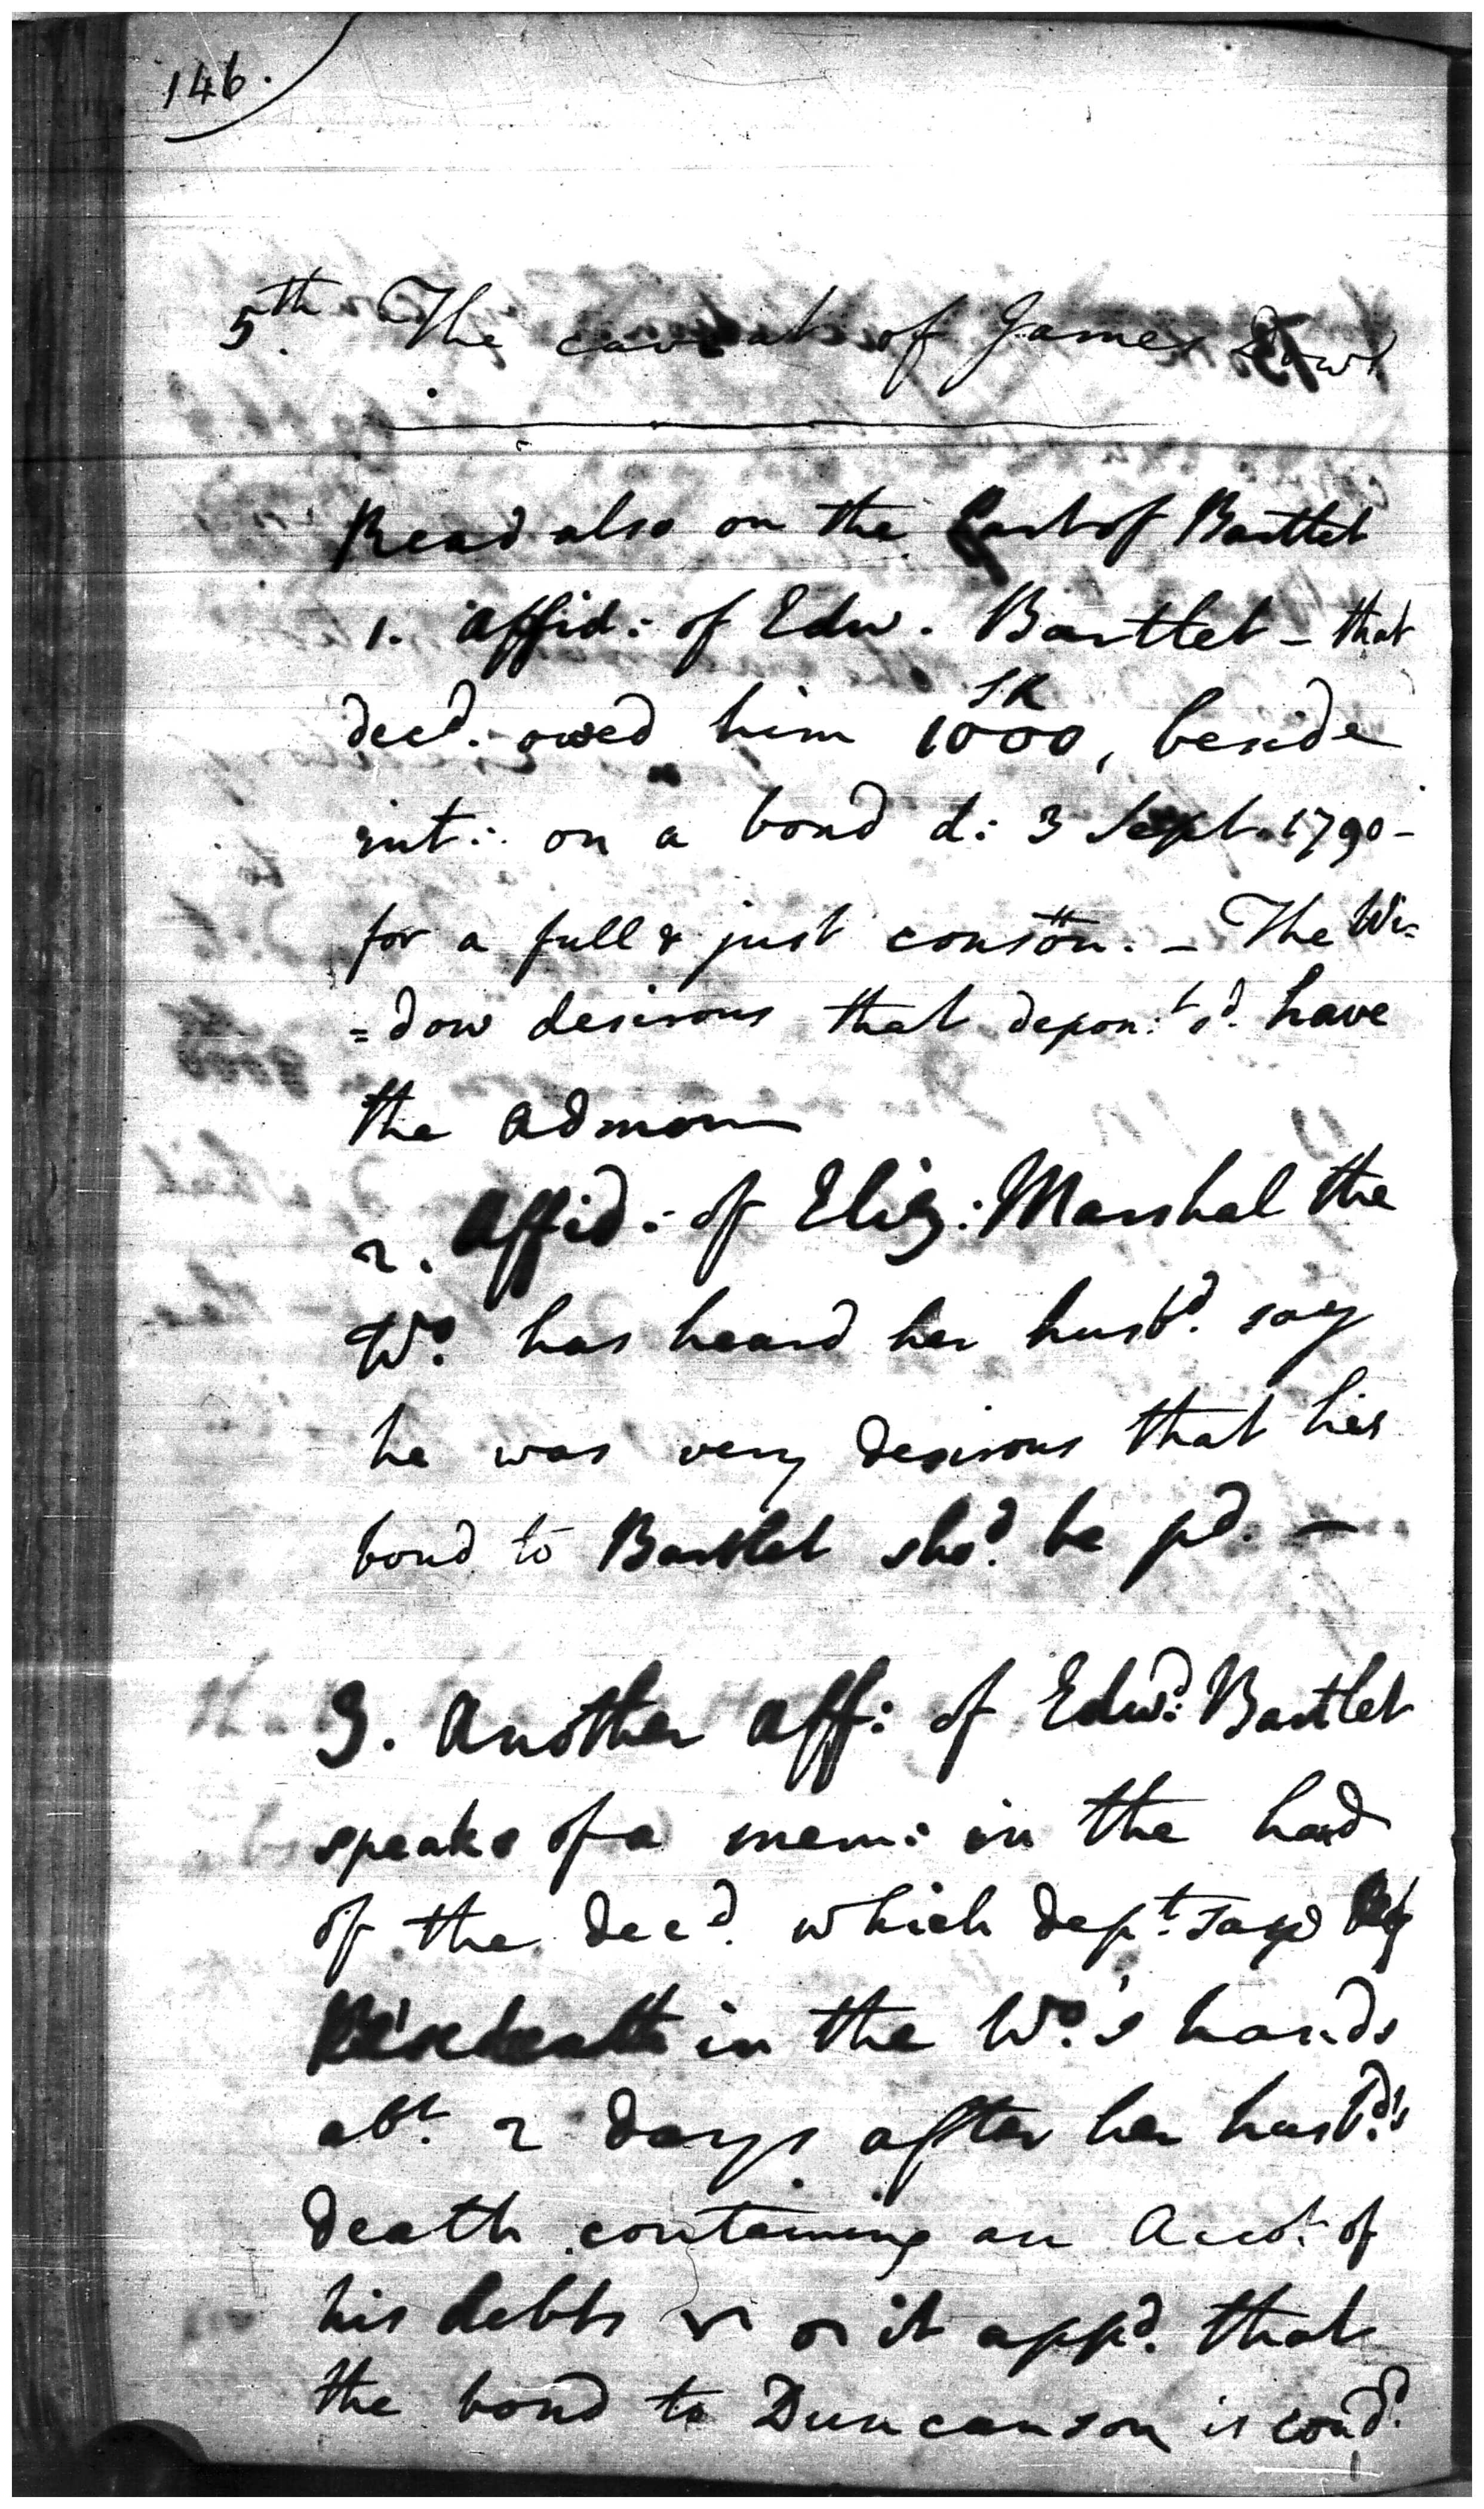 146.
5th. The caveat of James Ewt
Read also on the part of Bartlet
1. Affid: of Edw. Bartlet - that
decd. owed him SR 1000, beside
int: on a bond d: 3 Sept. 1790 -
for a full & just conston. - The Wi=
=dow desirous that depon:t sd. have
the admon
2. Affid: of Eliz: Marshal the
Wo. has heard her husbd. say
he was very desirous that his
bond to Bartlet shod. be pd. -
3. Another aff: of Edwd: Bartlet
speaks of a mem: in the hand
of the decd. which dept. saw
in the Wo.'s hands
abt. 2 days after her husbd.'s
death containing an Accot. of
his debts & on it appd. that
the bond to Duncanson is cond.